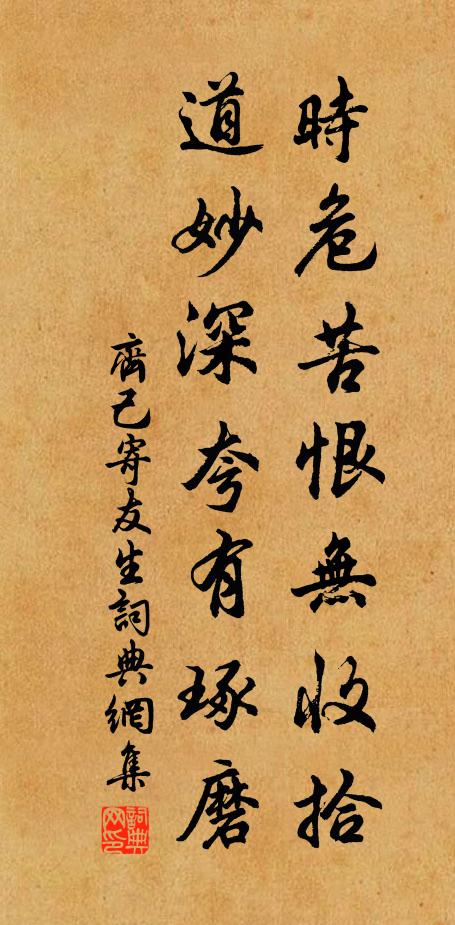 時危苦恨無收拾
道妙深夸有琢磨
齊己寄友生詞典網集
詞典网印